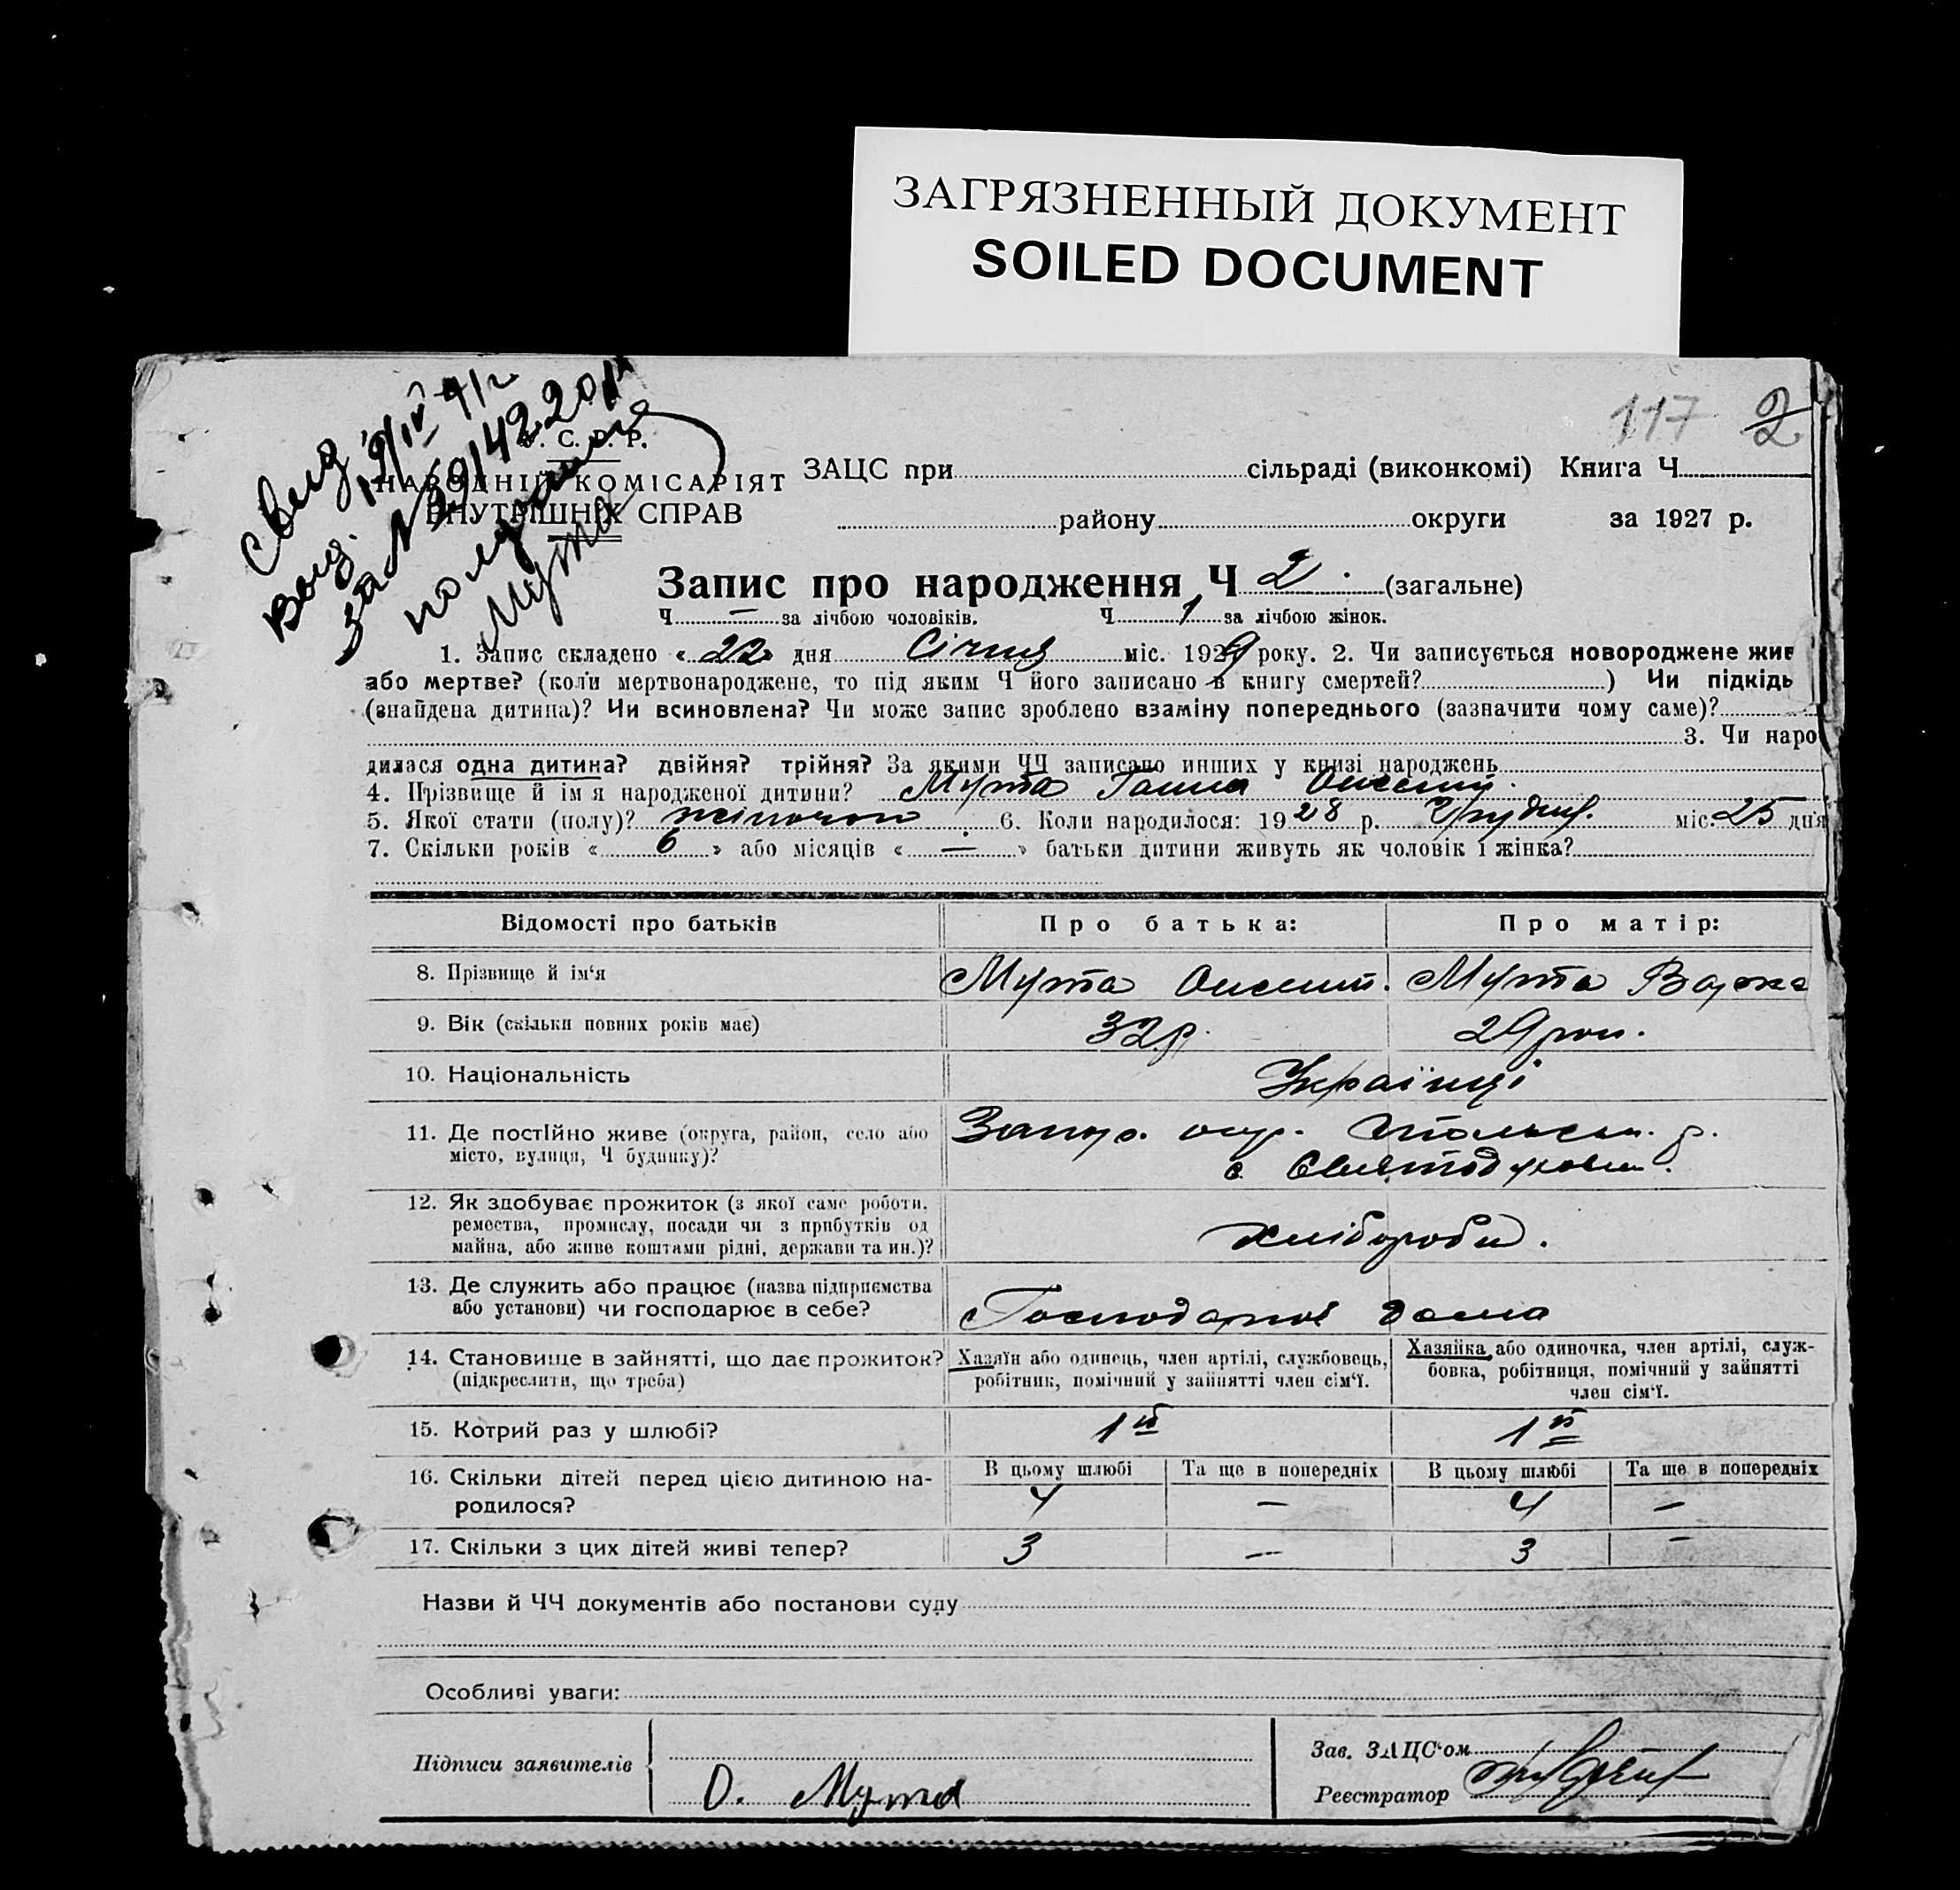 ЗАГРЯЗНЕННЫЙ ДОКУМЕНТ
SOILED DOCUMENT
117 2
Свид
выд. 19/IV 41 г.
за №
получила
Мута
У. С. Р. Р.
НАРОДНІЙ КОМІСАРІЯТ
ВНУТРІШНІХ СПРАВ
ЗАЦС при сільраді (виконкомі) Книга Ч
району округи за 1927 р.
Запис про народження Ч 2. (загальне)
Ч — за лічбою чоловіків. Ч 1 за лічбою жінок.
1. Запис складено « 22 » дня Січня міс. 1929 року. 2. Чи записується новороджене жив
або мертве? (коли мертвонароджене, то під яким Ч його записано в книгу смертей? ) Чи підкідь
(знайдена дитина)? Чи всиновлена? Чи може запис зроблено взаміну попереднього (зазначити чому саме)?
3. Чи наро
дилася одна дитина? двійня? трійня? За якими ЧЧ записано инших у книзі народжень
4. Прізвище й імя народженої дитини? Мута Ганна
5. Якої стати (полу)? жіночой 6. Коли народилося: 1928 р. Грудня міс. 25 дня
7. Скільки років « 6 » або місяців « — » батьки дитини живуть як чоловік і жінка?
Відомості про батьків Про батька: Про матір:
8. Прізвище й ім'я Мута Мута Варка
9. Вік (скільки повних років має) 32 р. 29 рок.
10. Національність Українці
11. Де постійно живе (округа, район, село або Запор. окр. р.
місто, вулиця, Ч будинку)? с. Святодуховка.
12. Як здобуває прожиток (з якої саме роботи,
ремества, промислу, посади чи з прибутків од Хлібороби.
майна, або живе коштами рідні, держави та ин.)?
13. Де служить або працює (назва підприємства
або установи) чи господарює в себе? Господарює дома
14. Становище в зайнятті, що дає прожиток? Хазяїн або одинець, член артілі, службовець, Хазяйка або одиночка, член артілі, служ-
(підкреслити, що треба) робітник, помічний у зайнятті член сім'ї. бовка, робітниця, помічний у зайнятті
член сім'ї.
15. Котрий раз у шлюбі? 1й 1й
16. Скільки дітей перед цією дитиною на- В цьому шлюбі Та ще в попередніх В цьому шлюбі Та ще в попередніх
родилося? 4 — 4 —
17. Скільки з цих дітей живі тепер? 3 — 3 —
Назви й ЧЧ документів або постанови суду
Особливі уваги:
Підписи заявителів О. Мута
Зав. ЗАЦС'ом
Реєстратор